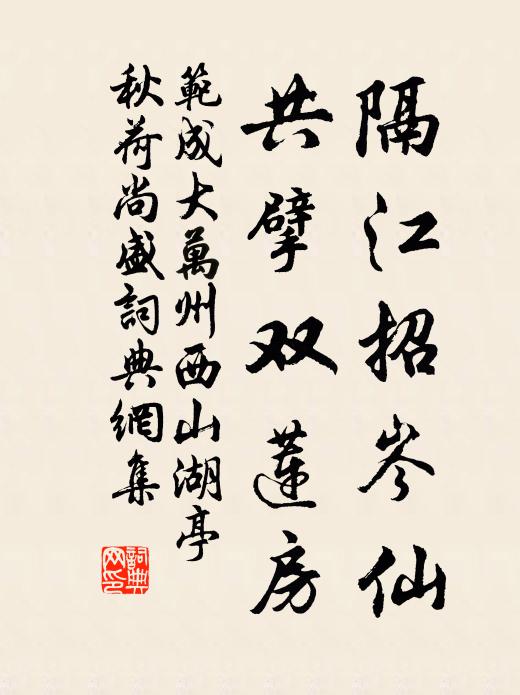 隔江招岑仙
共擘双蓮房
範成大萬州西山湖亭
秋荷尚盛詞典網集
詞典网印